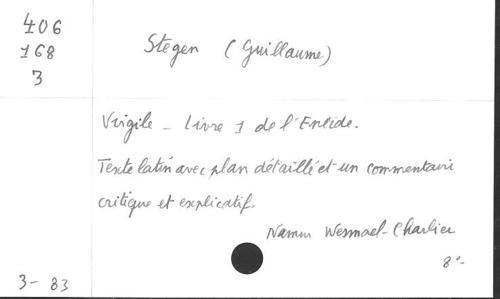 406
168
3
Stegen (Guillaume)
Virgile - Livre 1 de l'Enéide.
Texte latin avec plan détaillé et un commentaire
critique et explicatif.
Namur Wesmael-Charlier
8°-
3- 83